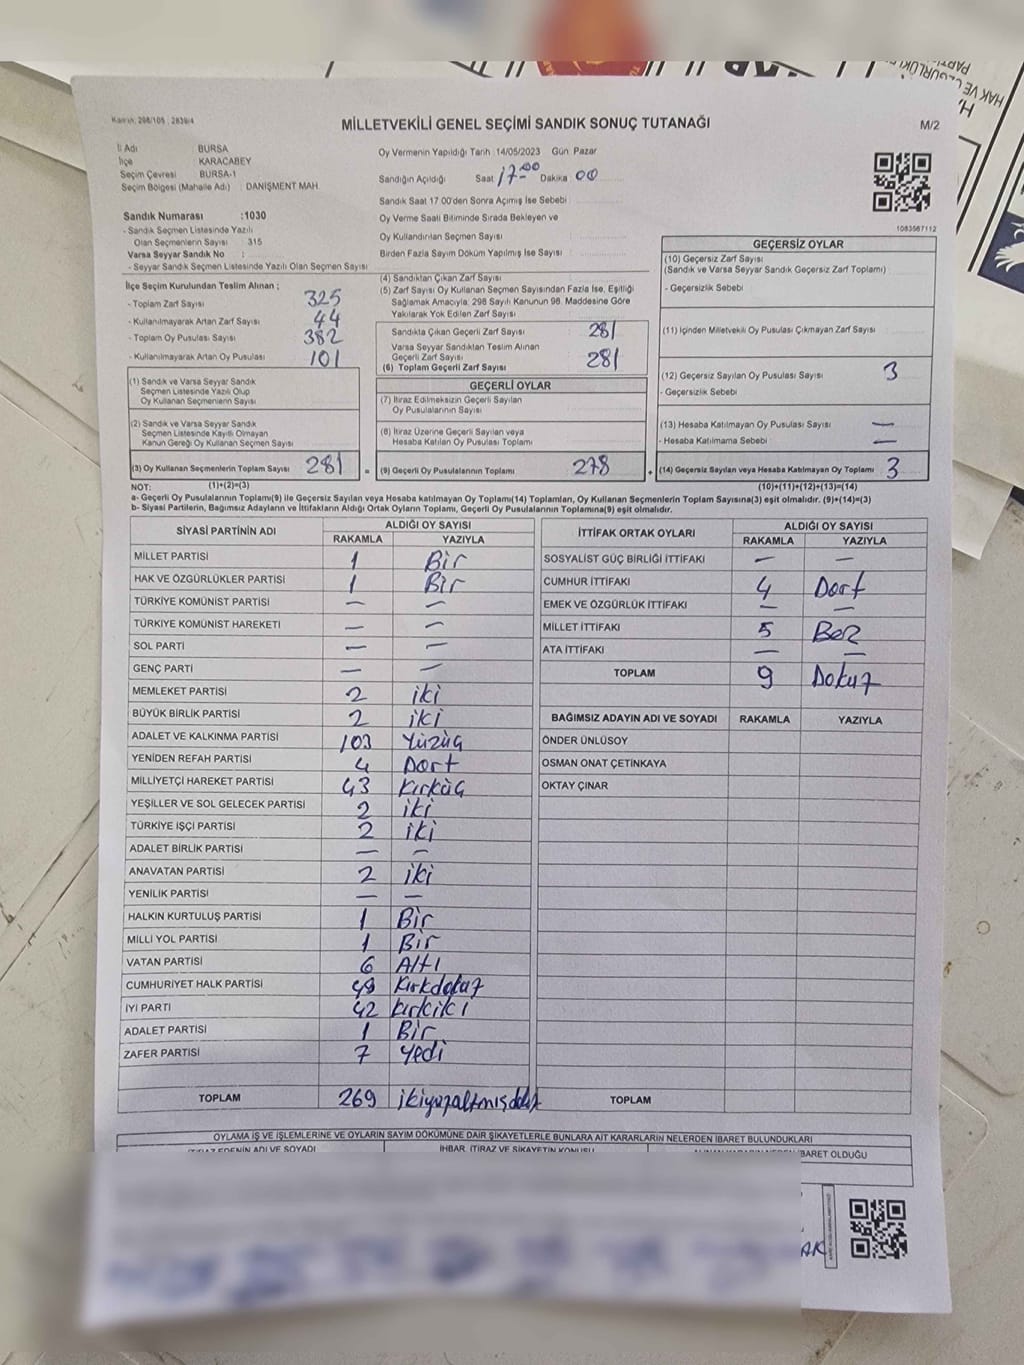 HAK VE ÖZGÜRLÜKLER
PARTİ
MİLLETVEKİLİ GENEL SEÇİMİ SANDIK SONUÇ TUTANAĞI
M/2
İl Adı BURSA
İlçe KARACABEY
Seçim Çevresi BURSA-1
Seçim Bölgesi (Mahalle Adı) : DANIŞMENT MAH.
Oy Vermenin Yapıldığı Tarih :14/05/2023 Gün: Pazar
Sandığın Açıldığı Saat 17:00 Dakika 00
Sandık Saat 17 00'den Sonra Açmış İse Sebebi :
Oy Verme Saati Bitiminde Sırada Bekleyen ve
Oy Kullandırılan Seçmen Sayısı
Birden Fazla Sayım Döküm Yapılmış İse Sayısı
1083587112
Sandık Numarası :1030
- Sandık Seçmen Listesinde Yazılı
Olan Seçmenlerin Sayısı : 315
Varsa Seyyar Sandık No :
- Seyyar Sandık Seçmen Listesinde Yazılı Olan Seçmen Sayısı
İlçe Seçim Kurulundan Teslim Alınan ;
- Toplam Zarf Sayısı 325
- Kullanılmayarak Artan Zarf Sayısı 44
- Toplam Oy Pusulası Sayısı 382
- Kullanılmayarak Artan Oy Pusulası 101
(1) Sandık ve Varsa Seyyar Sandık
Seçmen Listesinde Yazılı Olup
Oy Kullanan Seçmenlerin Sayısı
(2) Sandık ve Varsa Seyyar Sandık
Seçmen Listesinde Kayıtlı Olmayan
Kanun Gereği Oy Kullanan Seçmen Sayısı
(3) Oy Kullanan Seçmenlerin Toplam Sayısı 281 =
(4) Sandıktan Çıkan Zarf Sayısı
(5) Zarf Sayısı Oy Kullanan Seçmen Sayısından Fazla İse, Eşitliği
Sağlamak Amacıyla, 298 Sayılı Kanunun 98. Maddesine Göre
Yakılarak Yok Edilen Zarf Sayısı
Sandıkta Çıkan Geçerli Zarf Sayısı : 281
Varsa Seyyar Sandıktan Teslim Alınan
Geçerli Zarf Sayısı
(6) Toplam Geçerli Zarf Sayısı 281
GEÇERLİ OYLAR
(7) İtiraz Edilmeksizin Geçerli Sayılan
Oy Pusulalarının Sayısı
(8) İtiraz Üzerine Geçerli Sayılan veya
Hesaba Katılan Oy Pusulası Toplamı
(9) Geçerli Oy Pusulalarının Toplamı 278 +
GEÇERSİZ OYLAR
(10) Geçersiz Zarf Sayısı
(Sandık ve Varsa Seyyar Sandık Geçersiz Zarf Toplamı)
- Geçersizlik Sebebi
(11) İçinden Milletvekili Oy Pusulası Çıkmayan Zarf Sayısı
(12) Geçersiz Sayılan Oy Pusulası Sayısı 3
- Geçersizlik Sebebi
(13) Hesaba Katılmayan Oy Pusulası Sayısı —
- Hesaba Katılmama Sebebi —
(14) Geçersiz Sayılan veya Hesaba Katılmayan Oy Toplamı 3
NOT: (1)+(2)=(3) (10)+(11)+(12)+(13)=(14)
a- Geçerli Oy Pusulalarının Toplamı(9) ile Geçersiz Sayılan veya Hesaba katılmayan Oy Toplamı(14) Toplamları, Oy Kullanan Seçmenlerin Toplam Sayısına(3) eşit olmalıdır. (9)+(14)=(3)
b- Siyasi Partilerin, Bağımsız Adayların ve İttifakların Aldığı Ortak Oyların Toplamı, Geçerli Oy Pusulalarının Toplamına(9) eşit olmalıdır.
SİYASİ PARTİNİN ADI ALDIĞI OY SAYISI
RAKAMLA YAZIYLA
MİLLET PARTİSİ 1 Bir
HAK VE ÖZGÜRLÜKLER PARTİSİ 1 Bir
TÜRKİYE KOMÜNİST PARTİSİ — —
TÜRKİYE KOMÜNİST HAREKETİ — —
SOL PARTİ — —
GENÇ PARTİ — —
MEMLEKET PARTİSİ 2 iki
BÜYÜK BİRLİK PARTİSİ 2 iki
ADALET VE KALKINMA PARTİSİ 103 Yüzüç
YENİDEN REFAH PARTİSİ 4 Dört
MİLLİYETÇİ HAREKET PARTİSİ 43 Kırküç
YEŞİLLER VE SOL GELECEK PARTİSİ 2 iki
TÜRKİYE İŞÇİ PARTİSİ 2 iki
ADALET BİRLİK PARTİSİ — —
ANAVATAN PARTİSİ 2 iki
YENİLİK PARTİSİ — —
HALKIN KURTULUŞ PARTİSİ 1 Bir
MİLLİ YOL PARTİSİ 1 Bir
VATAN PARTİSİ 6 Altı
CUMHURİYET HALK PARTİSİ 49 Kırkdokuz
İYİ PARTİ 42 kırkiki
ADALET PARTİSİ 1 Bir
ZAFER PARTİSİ 7 yedi
TOPLAM 269 ikiyüzaltmışdokuz
İTTİFAK ORTAK OYLARI ALDIĞI OY SAYISI
RAKAMLA YAZIYLA
SOSYALİST GÜÇ BİRLİĞİ İTTİFAKI — —
CUMHUR İTTİFAKI 4 Dört
EMEK VE ÖZGÜRLÜK İTTİFAKI — —
MİLLET İTTİFAKI 5 Beş
ATA İTTİFAKI — —
TOPLAM 9 Dokuz
BAĞIMSIZ ADAYIN ADI VE SOYADI RAKAMLA YAZIYLA
ÖNDER ÜNLÜSOY
OSMAN ONAT ÇETİNKAYA
OKTAY ÇINAR
TOPLAM
OYLAMA İŞ VE İŞLEMLERİNE VE OYLARIN SAYIM DÖKÜMÜNE DAİR ŞİKAYETLERLE BUNLARA AİT KARARLARIN NELERDEN İBARET BULUNDUKLARI
ADI VE SOYADI İHBAR, İTİRAZ VE ŞİKAYETİN KONUSU İBARET OLDUĞU